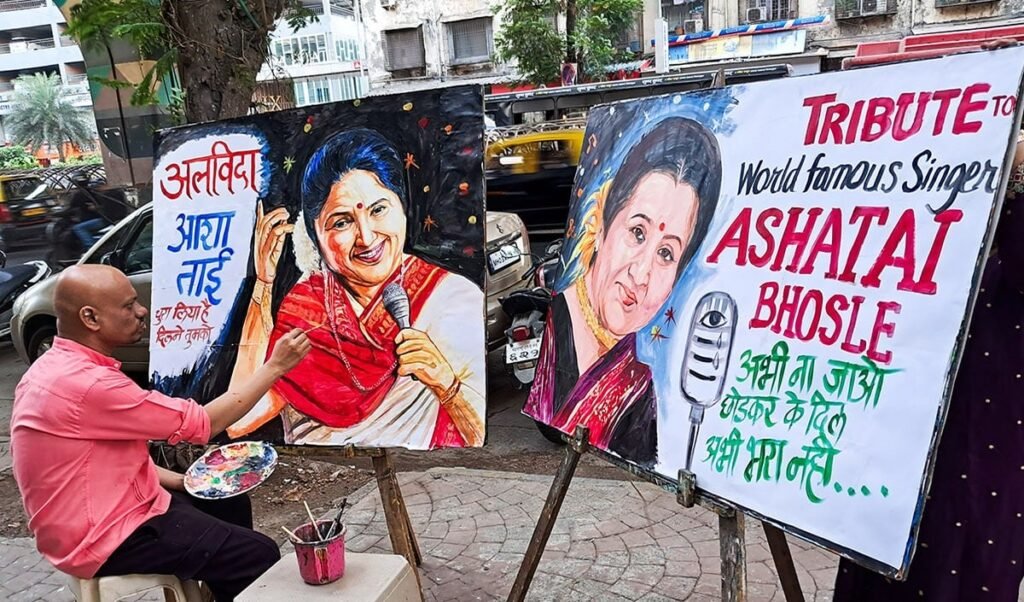 अलविदा
आशा
ताई
चुरा लिया है
दिलमे तुमको
TRIBUTE TO
World famous Singer
ASHATAI
BHOSLE
अभी ना जाओ
छोडकर के दिल
अभी भरा नही....